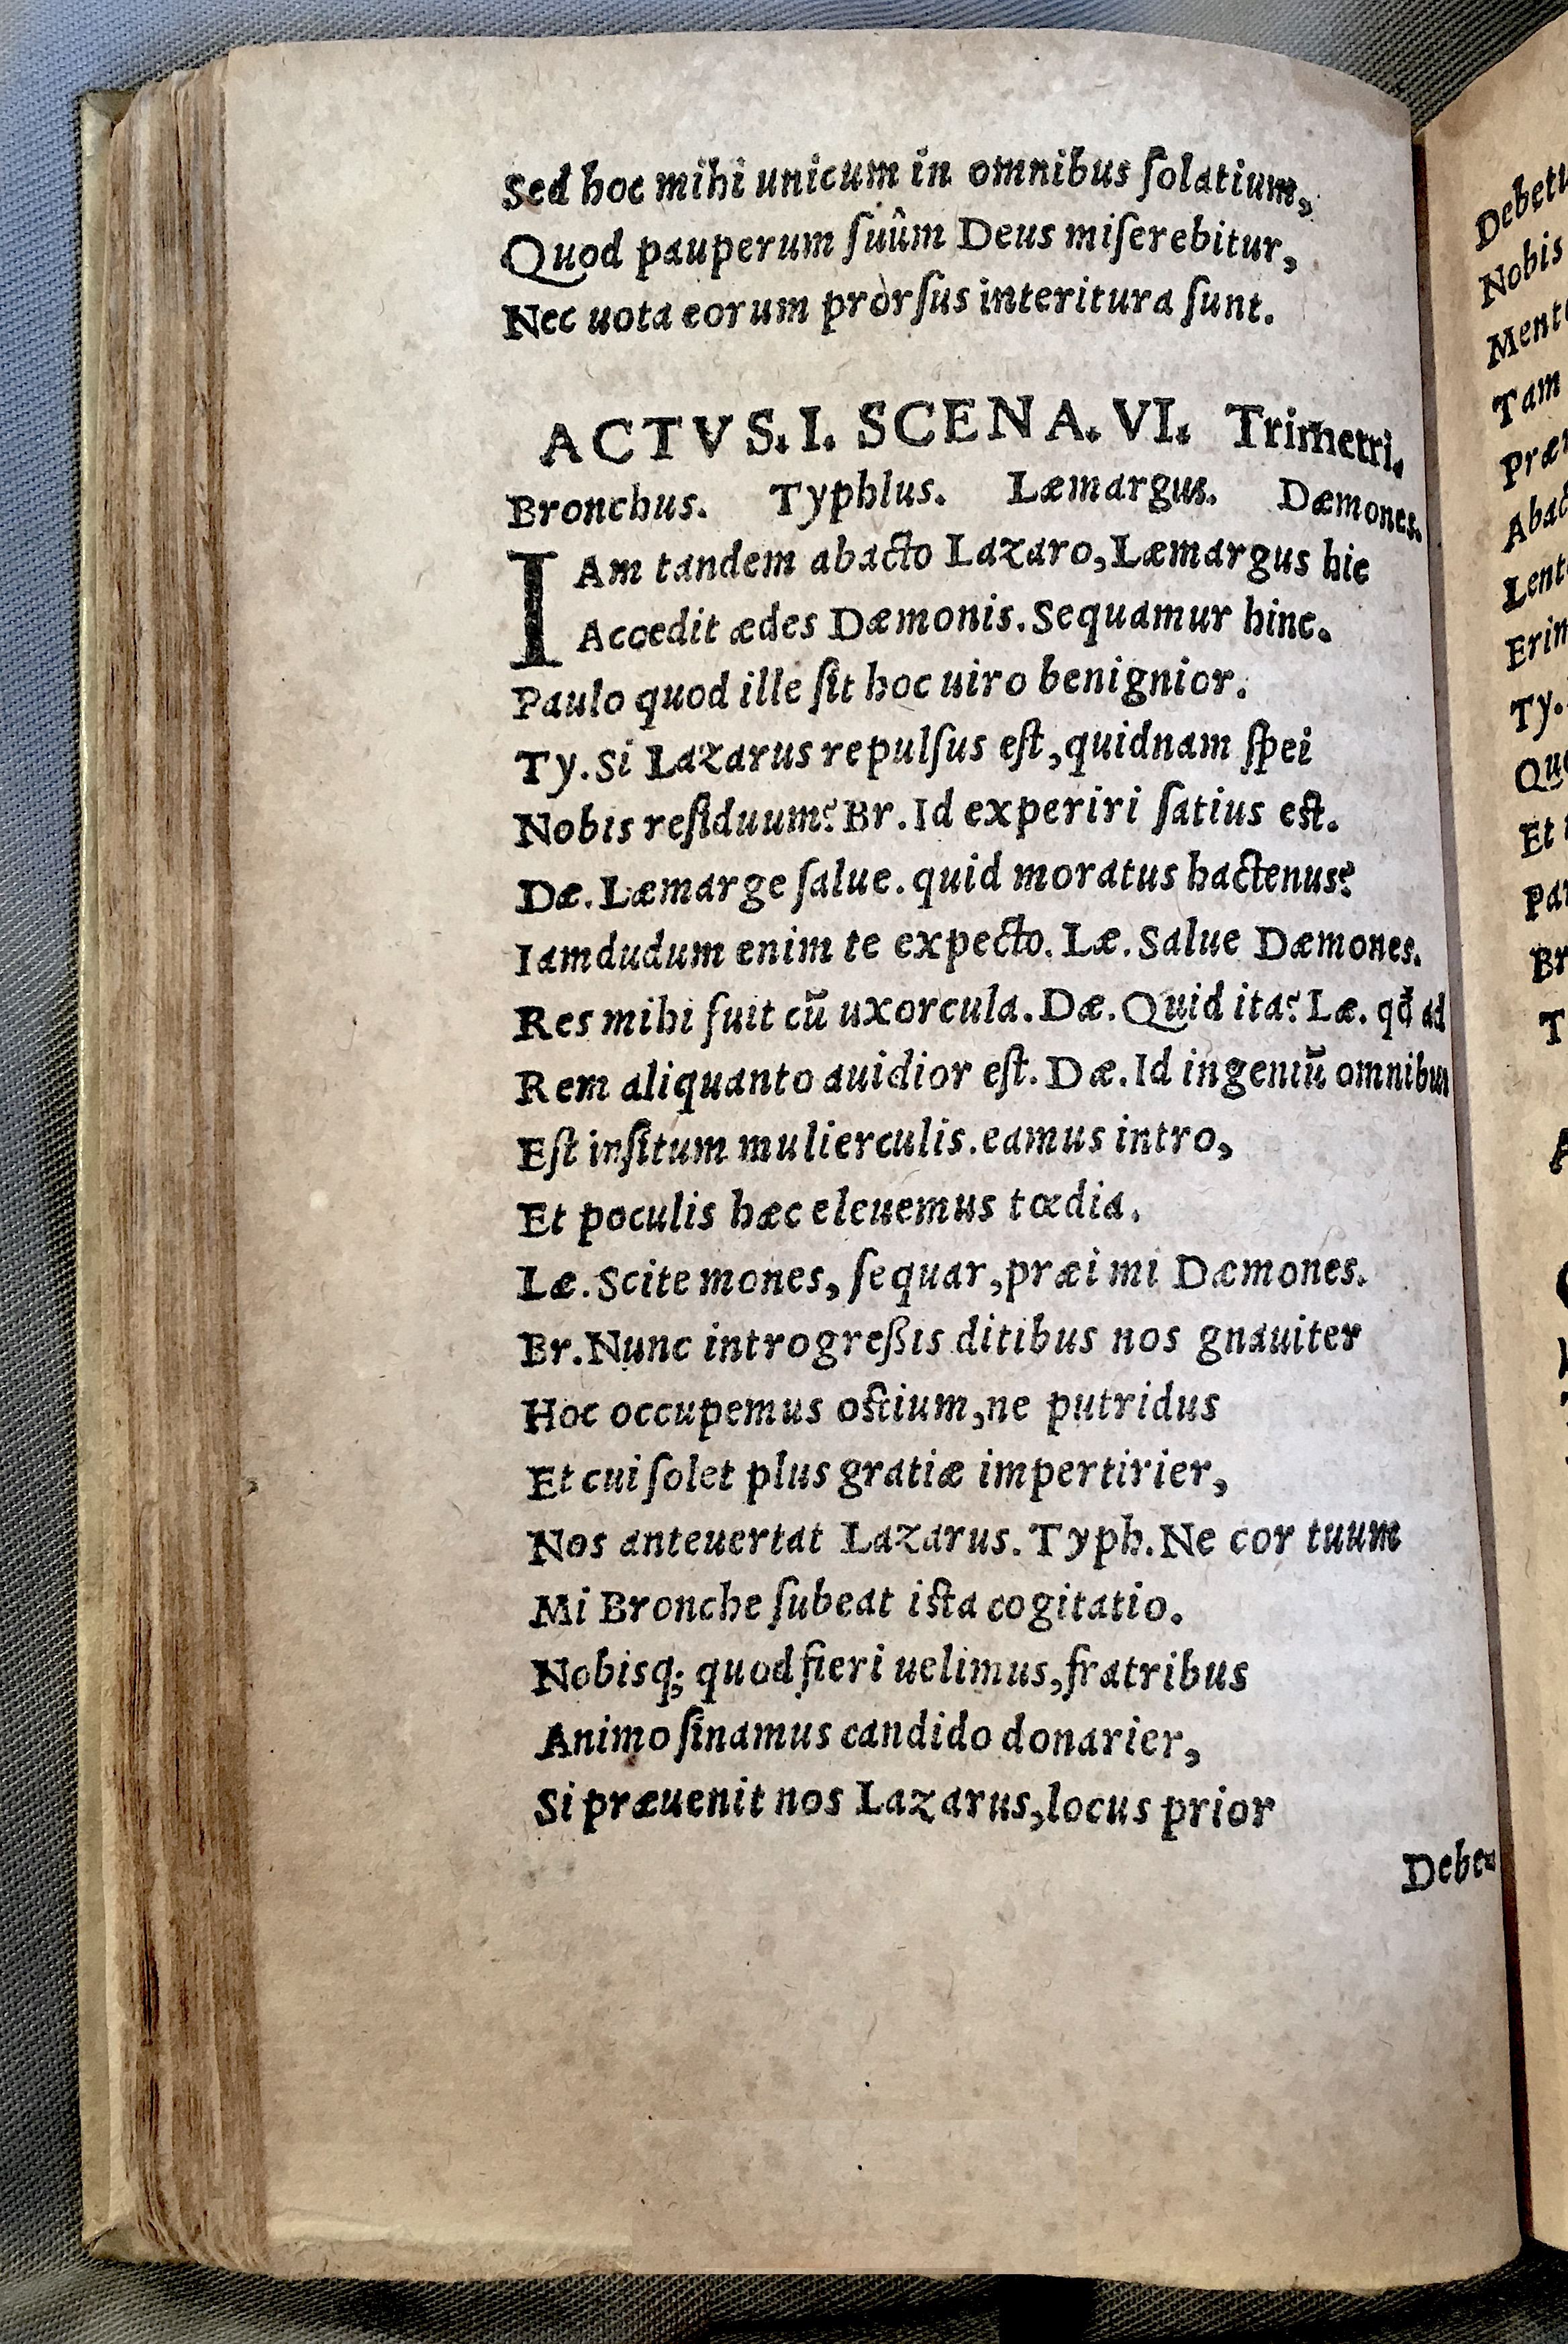 Sed hoc mihi unicum in omnibus ſolatium,
Quod pauperum ſuûm Deus miſerebitur,
Nec uota eorum prorſus interitura ſunt.
ACTVS. I. SCENA. VI. Trimetri.
Bronchus. Typhlus. Læmargus. Dæmones.
IAm tandem abacto Lazaro, Læmargus hic
Accedit ædes Dæmonis. Sequamur hinc.
Paulo quod ille ſit hoc uiro benignior.
Ty. Si Lazarus repulſus eſt, quidnam ſpei
Nobis reſiduum? Br. Id experiri ſatius eſt.
Dæ. Læmarge ſalue. quid moratus hactenus?
Iamdudum enim te expecto. Læ. Salue Dæmones.
Res mihi fuit cũ uxorcula. Dæ. Quid ita? Læ. qđ ad
Rem aliquanto auidior eſt. Dæ. Id ingeniũ omnibus
Eſt inſitum mulierculis. eamus intro,
Et poculis hæc eleuemus tœdia.
Læ. Scite mones, ſequar, præi mi Dæmones.
Br. Nunc introgreßis ditibus nos gnauiter
Hoc occupemus oſtium, ne putridus
Et cui ſolet plus gratiæ impertirier,
Nos anteuertat Lazarus. Typh. Ne cor tuum
Mi Bronche ſubeat iſta cogitatio.
Nobisq; quod fieri uelimus, fratribus
Animo ſinamus candido donarier,
Si præuenit nos Lazarus, locus prior
Debe-
Nobis
Tam
Abac
Ty.
Et
Br
T